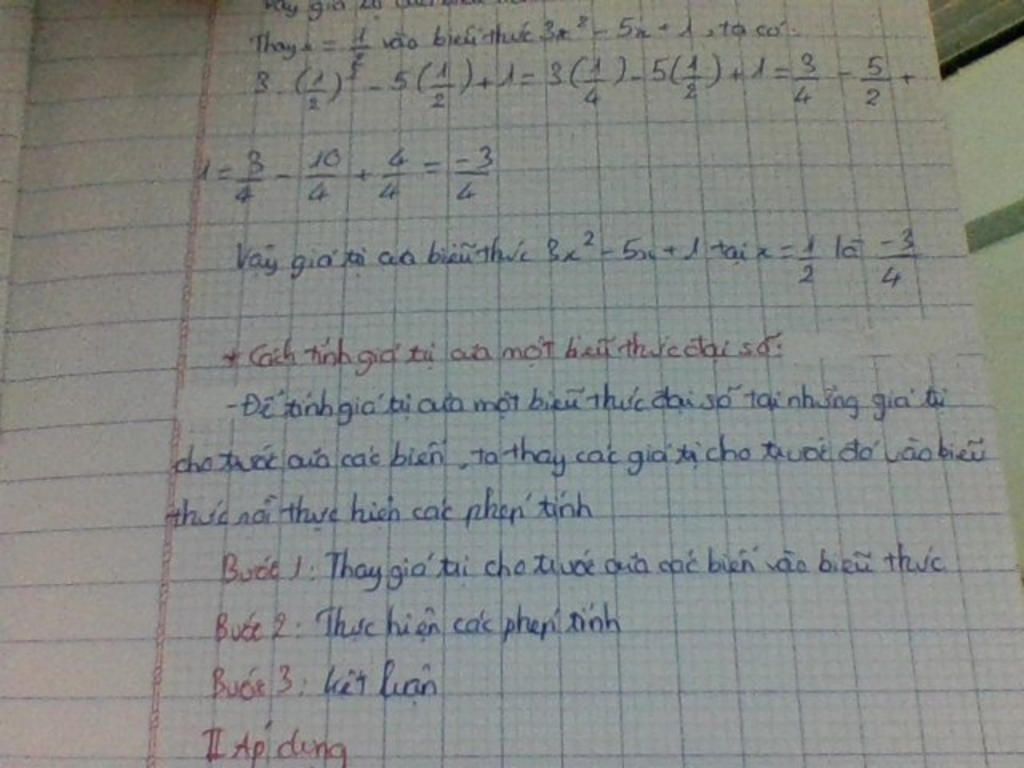 Vậy giá trị của biểu
Thay x = 1/2 vào biểu thức 3x² - 5x + 1, ta có:
3 . (1/2)² - 5(1/2) + 1 = 3(1/4) - 5(1/2) + 1 = 3/4 - 5/2 +
1 = 3/4 - 10/4 + 4/4 = -3/4
Vậy giá trị của biểu thức 3x² - 5x + 1 tại x = 1/2 là -3/4
* Cách tính giá trị của một biểu thức đại số:
- Để tính giá trị của một biểu thức đại số tại những giá trị
cho trước của các biến, ta thay các giá trị cho trước đó vào biểu
thức rồi thực hiện các phép tính
Bước 1: Thay giá trị cho trước của các biến vào biểu thức
Bước 2: Thực hiện các phép tính
Bước 3: Kết luận
II Áp dụng